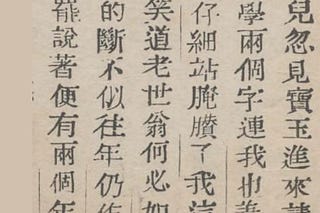 兒忽見寶玉進來請
學兩個字連我也善
仔細站腌臢了我這
笑道老世翁何必如
的斷不似往年仍作
罷說著便有兩個年